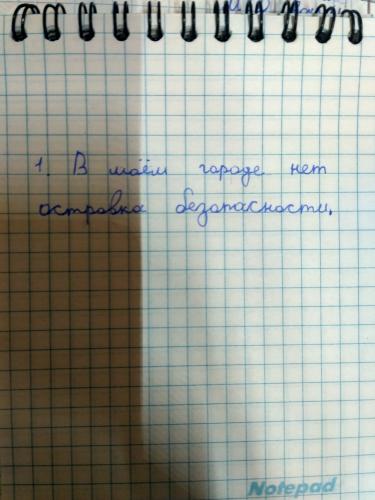 1. В моём городе нет
островка безопасности.
Notepad